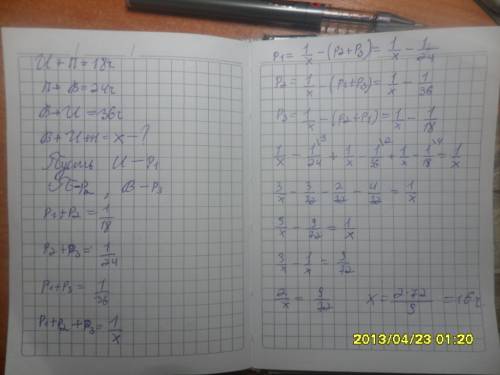 И + П = 18ч
П + В = 24ч
В + И = 36ч
В + И + П = x - ?
Пусть И - P₁
П - P₂, В - P₃
P₁+P₂ = 1/18
P₂+P₃ = 1/24
P₁+P₃ = 1/36
P₁+P₂+P₃ = 1/x
P₁ = 1/x - (P₂+P₃) = 1/x - 1/24
P₂ = 1/x - (P₁+P₃) = 1/x - 1/36
P₃ = 1/x - (P₂+P₁) = 1/x - 1/18
1/x - 1/24 \3 + 1/x - 1/36 \2 + 1/x - 1/18 \4 = 1/x
3/x - 3/72 - 2/72 - 4/72 = 1/x
3/x - 9/72 = 1/x
3/x - 1/x = 9/72
2/x = 9/72 x = 2·72/9 = 16ч
2013/04/23 01:20